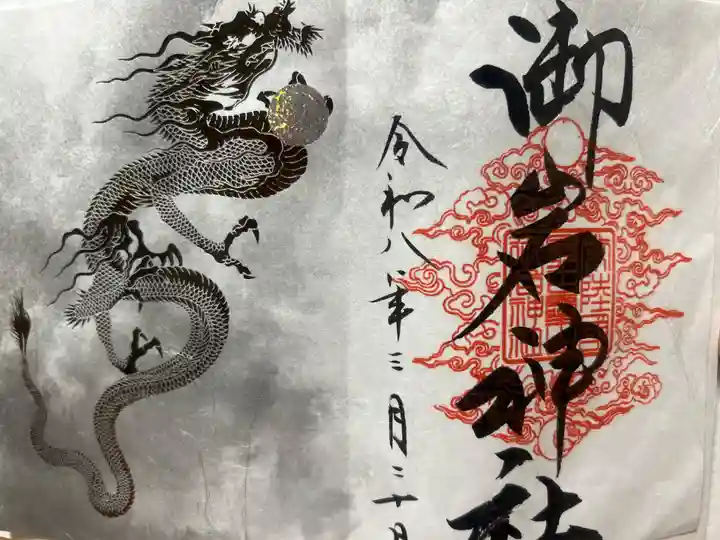 御岩神社
令和八年三月二十日